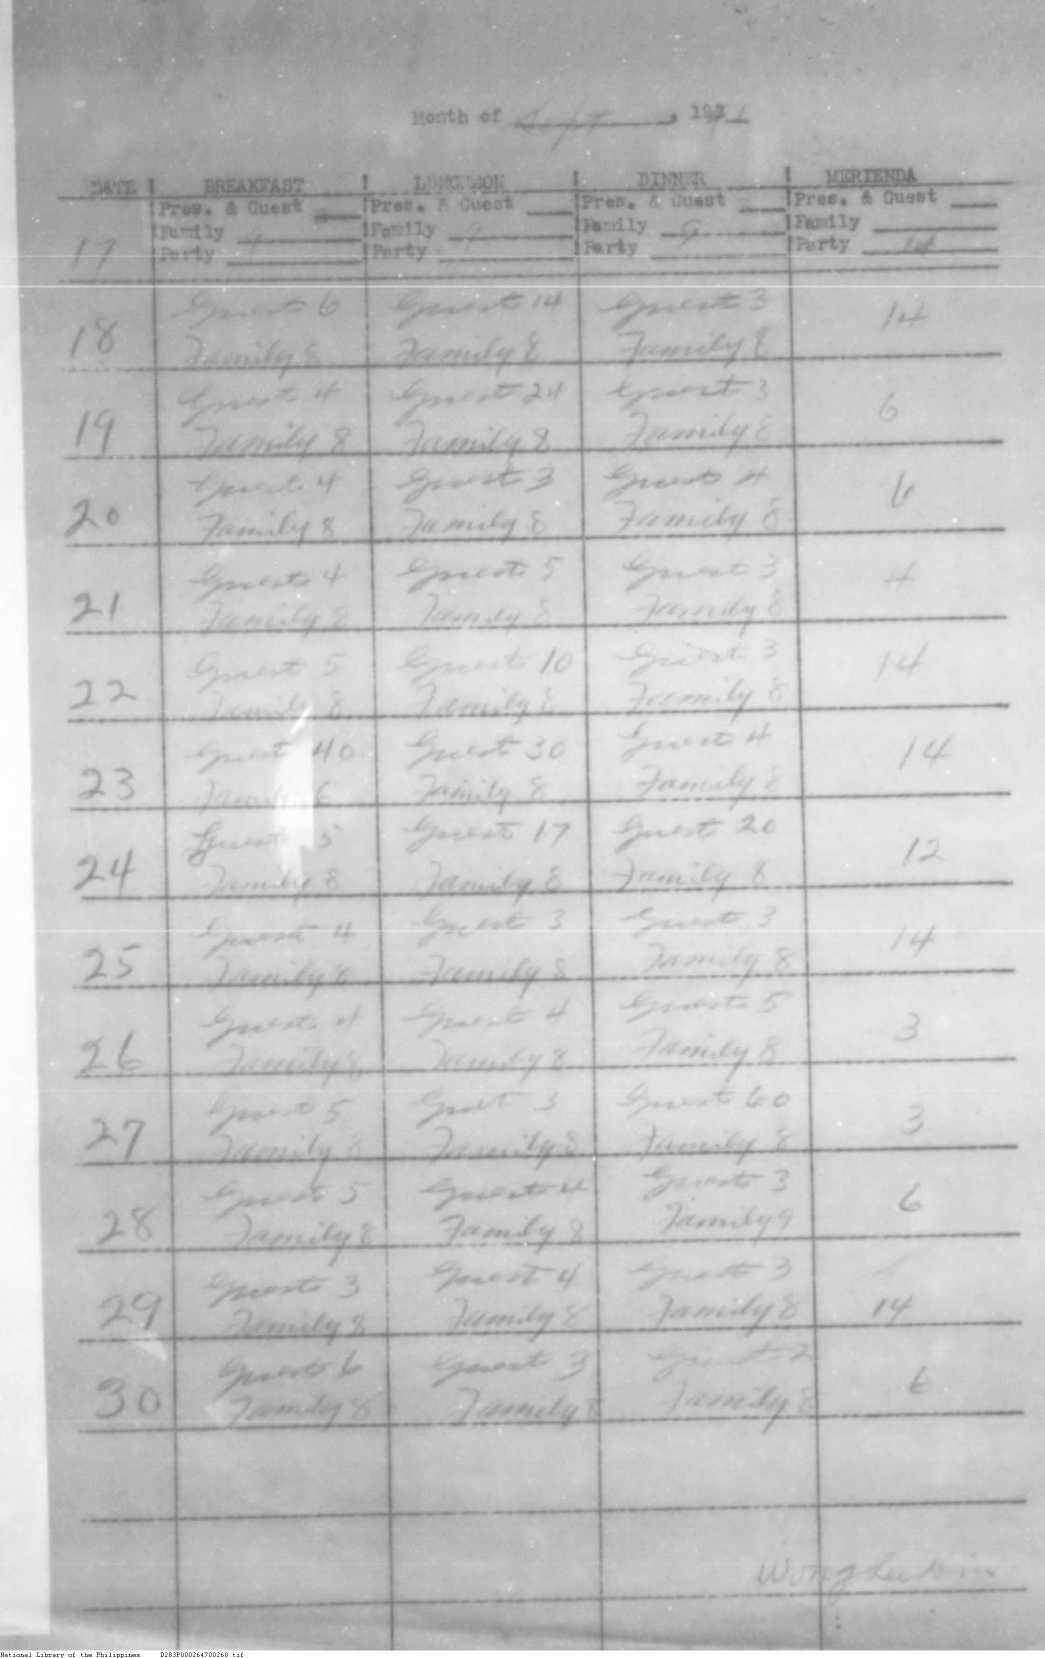 Month of Sept , 1941
DATE BREAKFAST LUNCHEON DINNER MERIENDA
Pres. & Guest Pres. & Guest Pres. & Guest Pres. & Guest
17 Family 9 Family 9 Family 9 Family
Party Party Party Party 14
Guest 6 Guest 14 Guest 3 14
18 Family 8 Family 8 Family 8
Guest 4 Guest 24 Guest 3 6
19 Family 8 Family 8 Family 8
Guest 4 Guest 3 Guest 4 6
20 Family 8 Family 8 Family 8
Guest 4 Guest 5 Guest 3 4
21 Family 8 Family 8 Family 8
Guest 5 Guest 10 Guest 3 14
22 Family 8 Family 8 Family 8
Guest 40 Guest 30 Guest 4 14
23 Family 6 Family 8 Family 8
Guest 5 Guest 17 Guest 20 12
24 Family 8 Family 8 Family 8
Guest 4 Guest 3 Guest 3 14
25 Family 8 Family 8 Family 8
Guest 4 Guest 4 Guest 5 3
26 Family 8 Family 8 Family 8
Guest 5 Guest 3 Guest 60 3
27 Family 8 Family 8 Family 8
Guest 5 Guest 4 Guest 3 6
28 Family 8 Family 8 Family 9
Guest 3 Guest 4 Guest 3
29 Family 8 Family 8 Family 8 14
Guest 6 Guest 3 Guest 2 6
30 Family 8 Family 8 Family 8
National Library of the Philippines D283P000264700268.tif